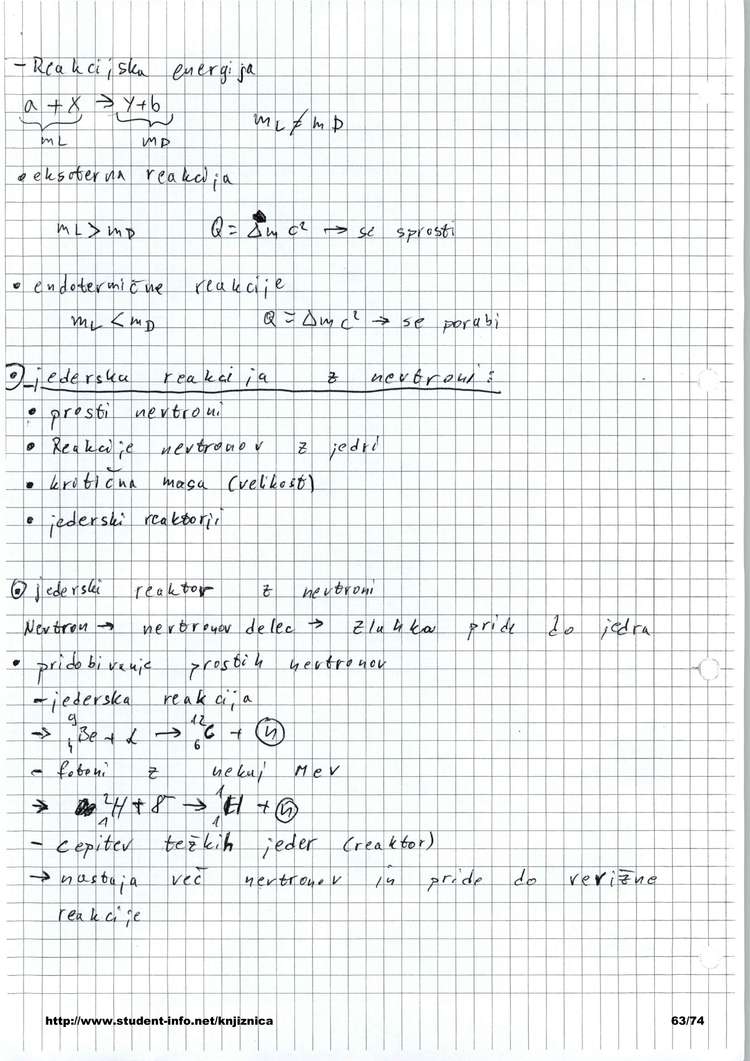 - Reakcijska energija
a + X → Y + b
mL mD mL ≠ mD
• eksoterna reakcija
mL > mD Q = Δm c² → se sprosti
• endotermične reakcije
mL < mD Q = Δm c² → se porabi
- jederska reakcija z nevtroni:
• prosti nevtroni
• Reakcije nevtronov z jedri
• kritična masa (velikost)
• jederski reaktorji
jederski reaktor z nevtroni
Nevtron → nevtronov delec → zlahka pride do jedra
• pridobivanje prostih nevtronov
- jederska reakcija
→ ⁹₄Be + α → ¹²₆C + n
- fotoni z nekaj MeV
→ ²₁H + γ → ¹₁H + n
- cepitev težkih jeder (reaktor)
→ nastaja več nevtronov in pride do verižne
reakcije
http://www.student-info.net/knjiznica 63/74